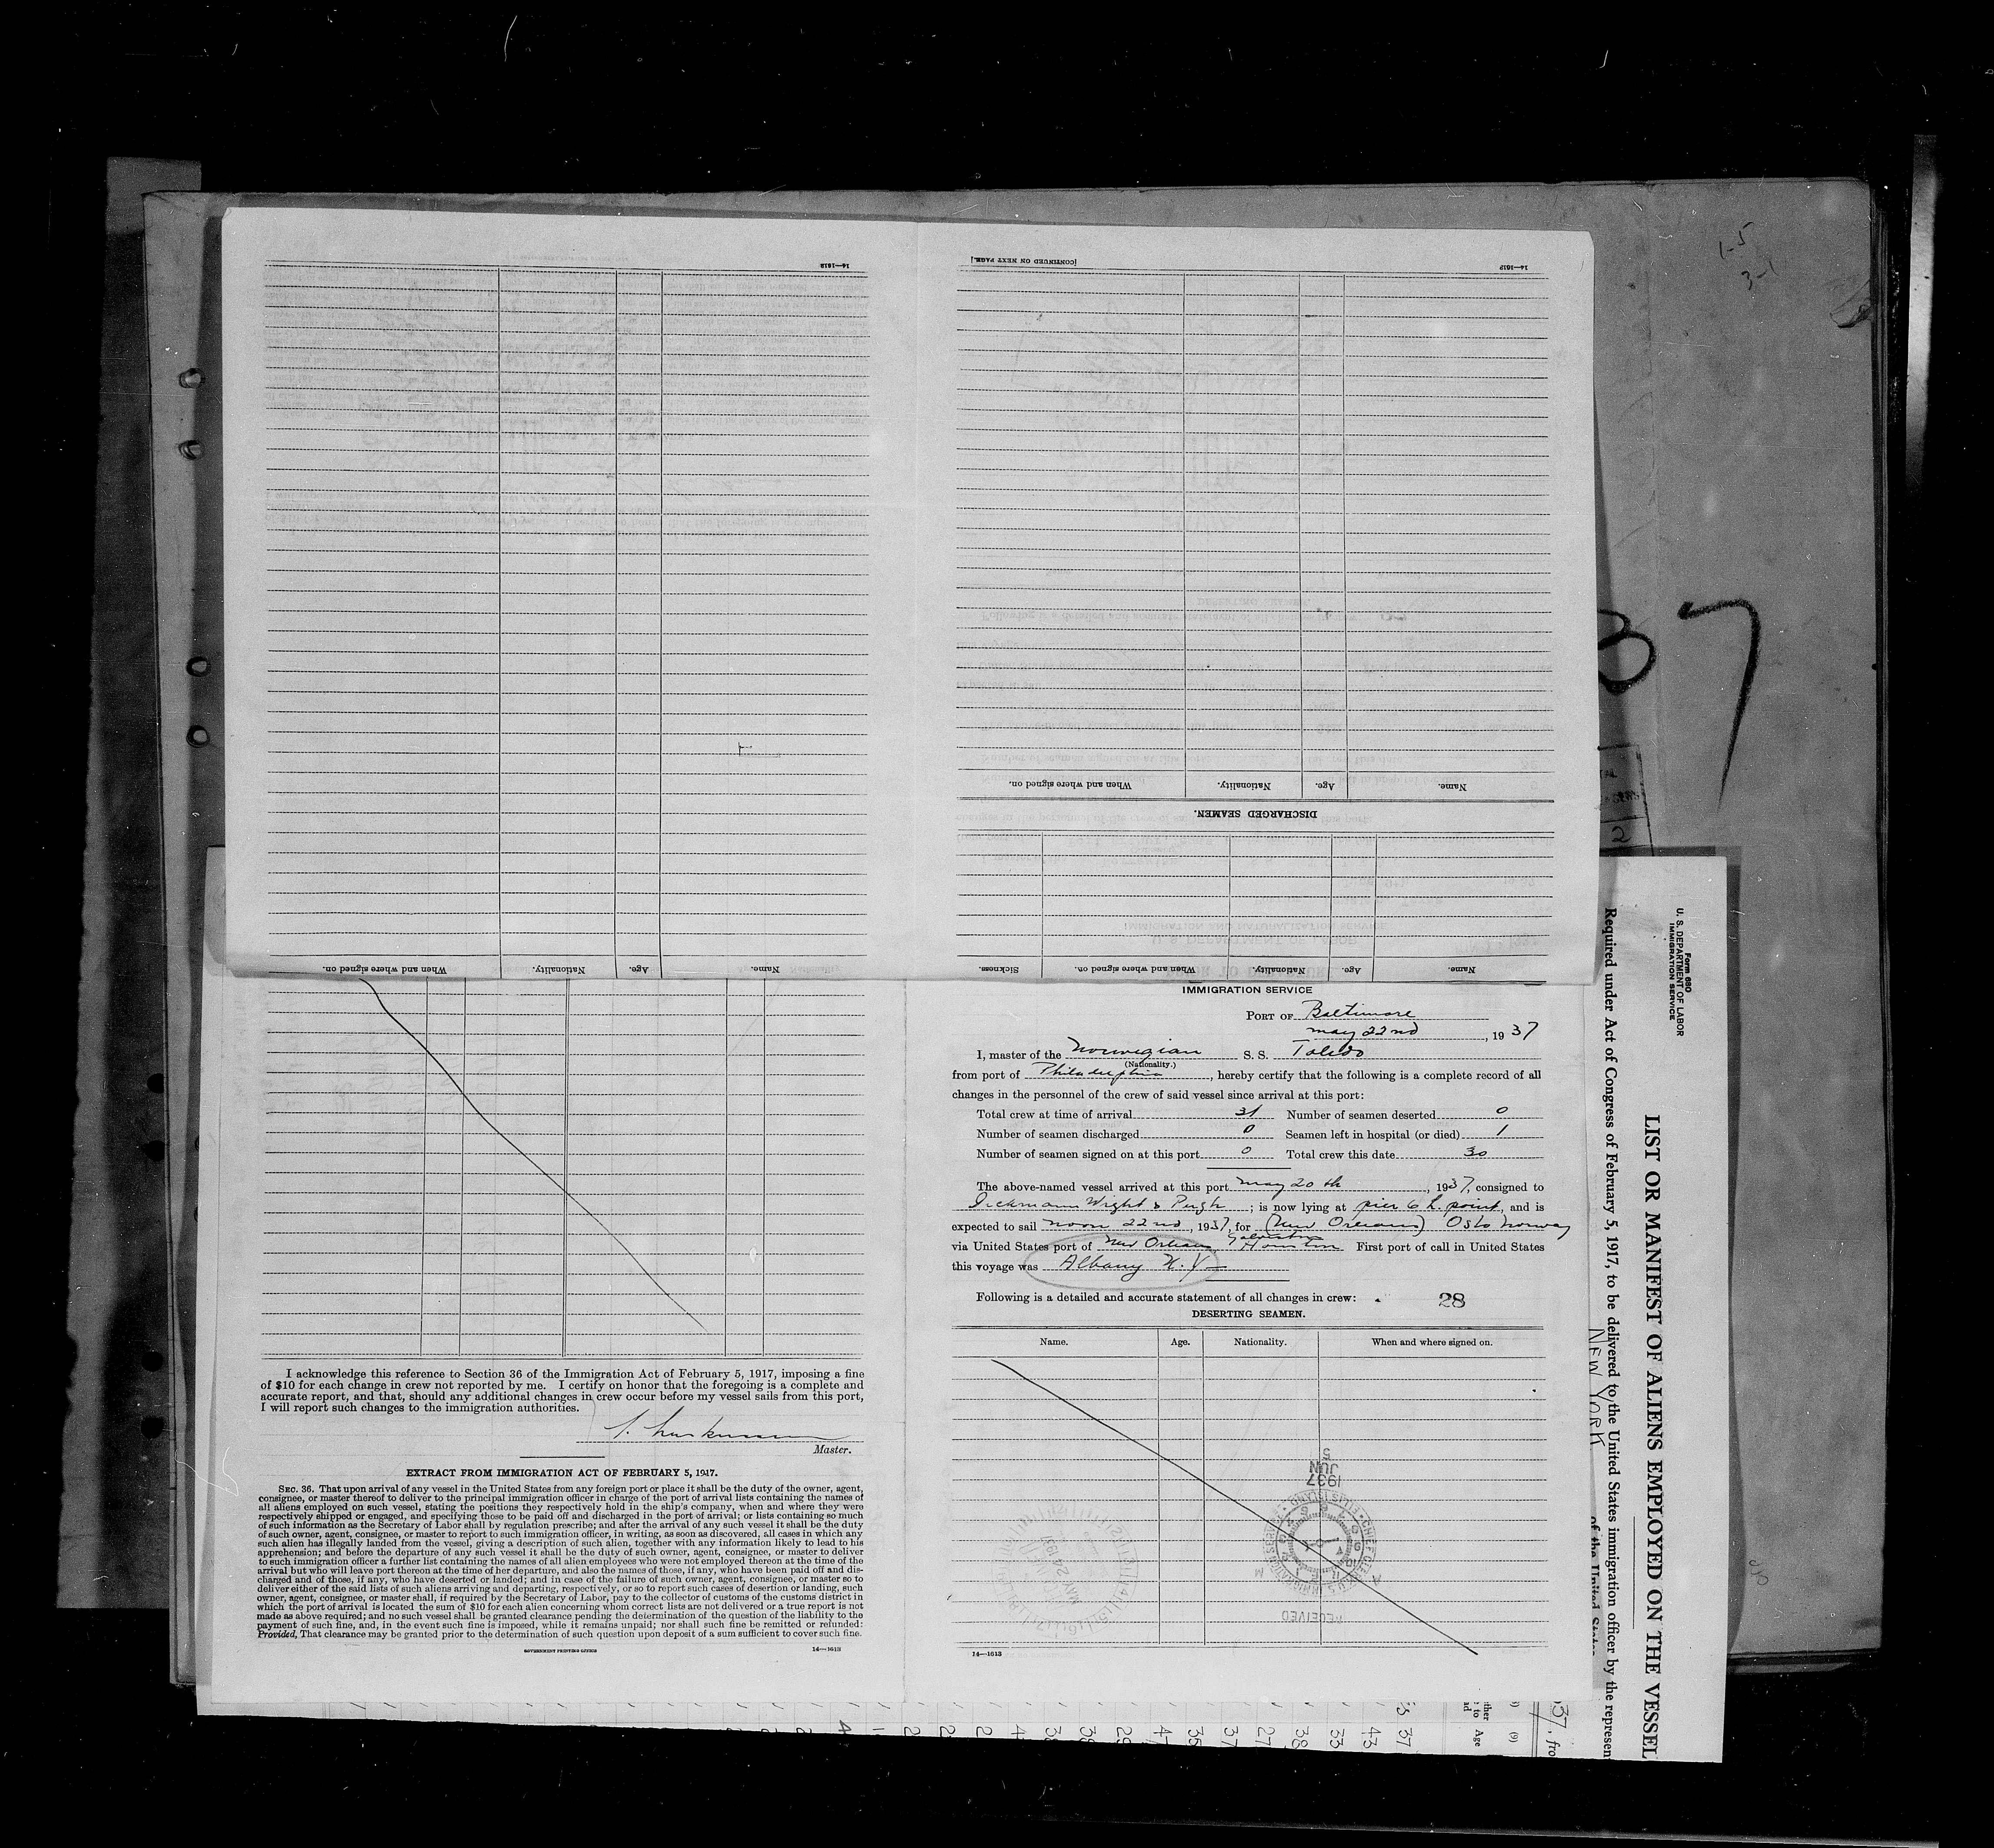 14—1613
[CONTINUED ON NEXT PAGE.]
14—1613
Name. Age. Nationality. When and where signed on.
DISCHARGED SEAMEN.
Name. Age. Nationality. When and where signed on.
Name. Age. Nationality. When and where signed on. Sickness.
IMMIGRATION SERVICE
PORT OF Baltimore
May 22nd, 1937
I, master of the Norwegian S. S. Toledo
(Nationality.)
from port of Philadelphia, hereby certify that the following is a complete record of all
changes in the personnel of the crew of said vessel since arrival at this port:
Total crew at time of arrival 31 Number of seamen deserted 0
Number of seamen discharged 0 Seamen left in hospital (or died) 1
Number of seamen signed on at this port 0 Total crew this date 30
The above-named vessel arrived at this port May 20th, 1937, consigned to
Wight & Pugh; is now lying at pier 6 L. point, and is
expected to sail noon 22nd, 1937, for (New Orleans) Oslo Norway
via United States port of New Orleans, Galveston Houston First port of call in United States
this voyage was Albany N.Y.
Following is a detailed and accurate statement of all changes in crew: 28
DESERTING SEAMEN.
Name. Age. Nationality. When and where signed on.
JUN 5 1937
RECEIVED
MAY 24 1937
14—1613
I acknowledge this reference to Section 36 of the Immigration Act of February 5, 1917, imposing a fine
of $10 for each change in crew not reported by me. I certify on honor that the foregoing is a complete and
accurate report, and that, should any additional changes in crew occur before my vessel sails from this port,
I will report such changes to the immigration authorities.
Master.
EXTRACT FROM IMMIGRATION ACT OF FEBRUARY 5, 1917.
SEC. 36. That upon arrival of any vessel in the United States from any foreign port or place it shall be the duty of the owner, agent,
consignee, or master thereof to deliver to the principal immigration officer in charge of the port of arrival lists containing the names of
all aliens employed on such vessel, stating the positions they respectively hold in the ship's company, when and where they were
respectively shipped or engaged, and specifying those to be paid off and discharged in the port of arrival; or lists containing so much
of such information as the Secretary of Labor shall by regulation prescribe; and after the arrival of any such vessel it shall be the duty
of such owner, agent, consignee, or master to report to such immigration officer, in writing, as soon as discovered, all cases in which any
such alien has illegally landed from the vessel, giving a description of such alien, together with any information likely to lead to his
apprehension; and before the departure of any such vessel it shall be the duty of such owner, agent, consignee, or master to deliver
to such immigration officer a further list containing the names of all alien employees who were not employed thereon at the time of the
arrival but who will leave port thereon at the time of her departure, and also the names of those, if any, who have been paid off and dis-
charged and of those, if any, who have deserted or landed; and in case of the failure of such owner, agent, consignee, or master so to
deliver either of the said lists of such aliens arriving and departing, respectively, or so to report such cases of desertion or landing, such
owner, agent, consignee, or master shall, if required by the Secretary of Labor, pay to the collector of customs of the customs district in
which the port of arrival is located the sum of $10 for each alien concerning whom correct lists are not delivered or a true report is not
made as above required; and no such vessel shall be granted clearance pending the determination of the question of the liability to the
payment of such fine, and, in the event such fine is imposed, while it remains unpaid; nor shall such fine be remitted or refunded:
Provided, That clearance may be granted prior to the determination of such question upon deposit of a sum sufficient to cover such fine.
GOVERNMENT PRINTING OFFICE
14—1613
Form 680
U. S. DEPARTMENT OF LABOR
IMMIGRATION SERVICE
LIST OR MANIFEST OF ALIENS EMPLOYED ON THE VESSEL
Required under Act of Congress of February 5, 1917, to be delivered to the United States immigration officer by the represen
NEW YORK
of the United States
37, fro
(9)
Age
37
43
33
38
27
37
35
47
29
37